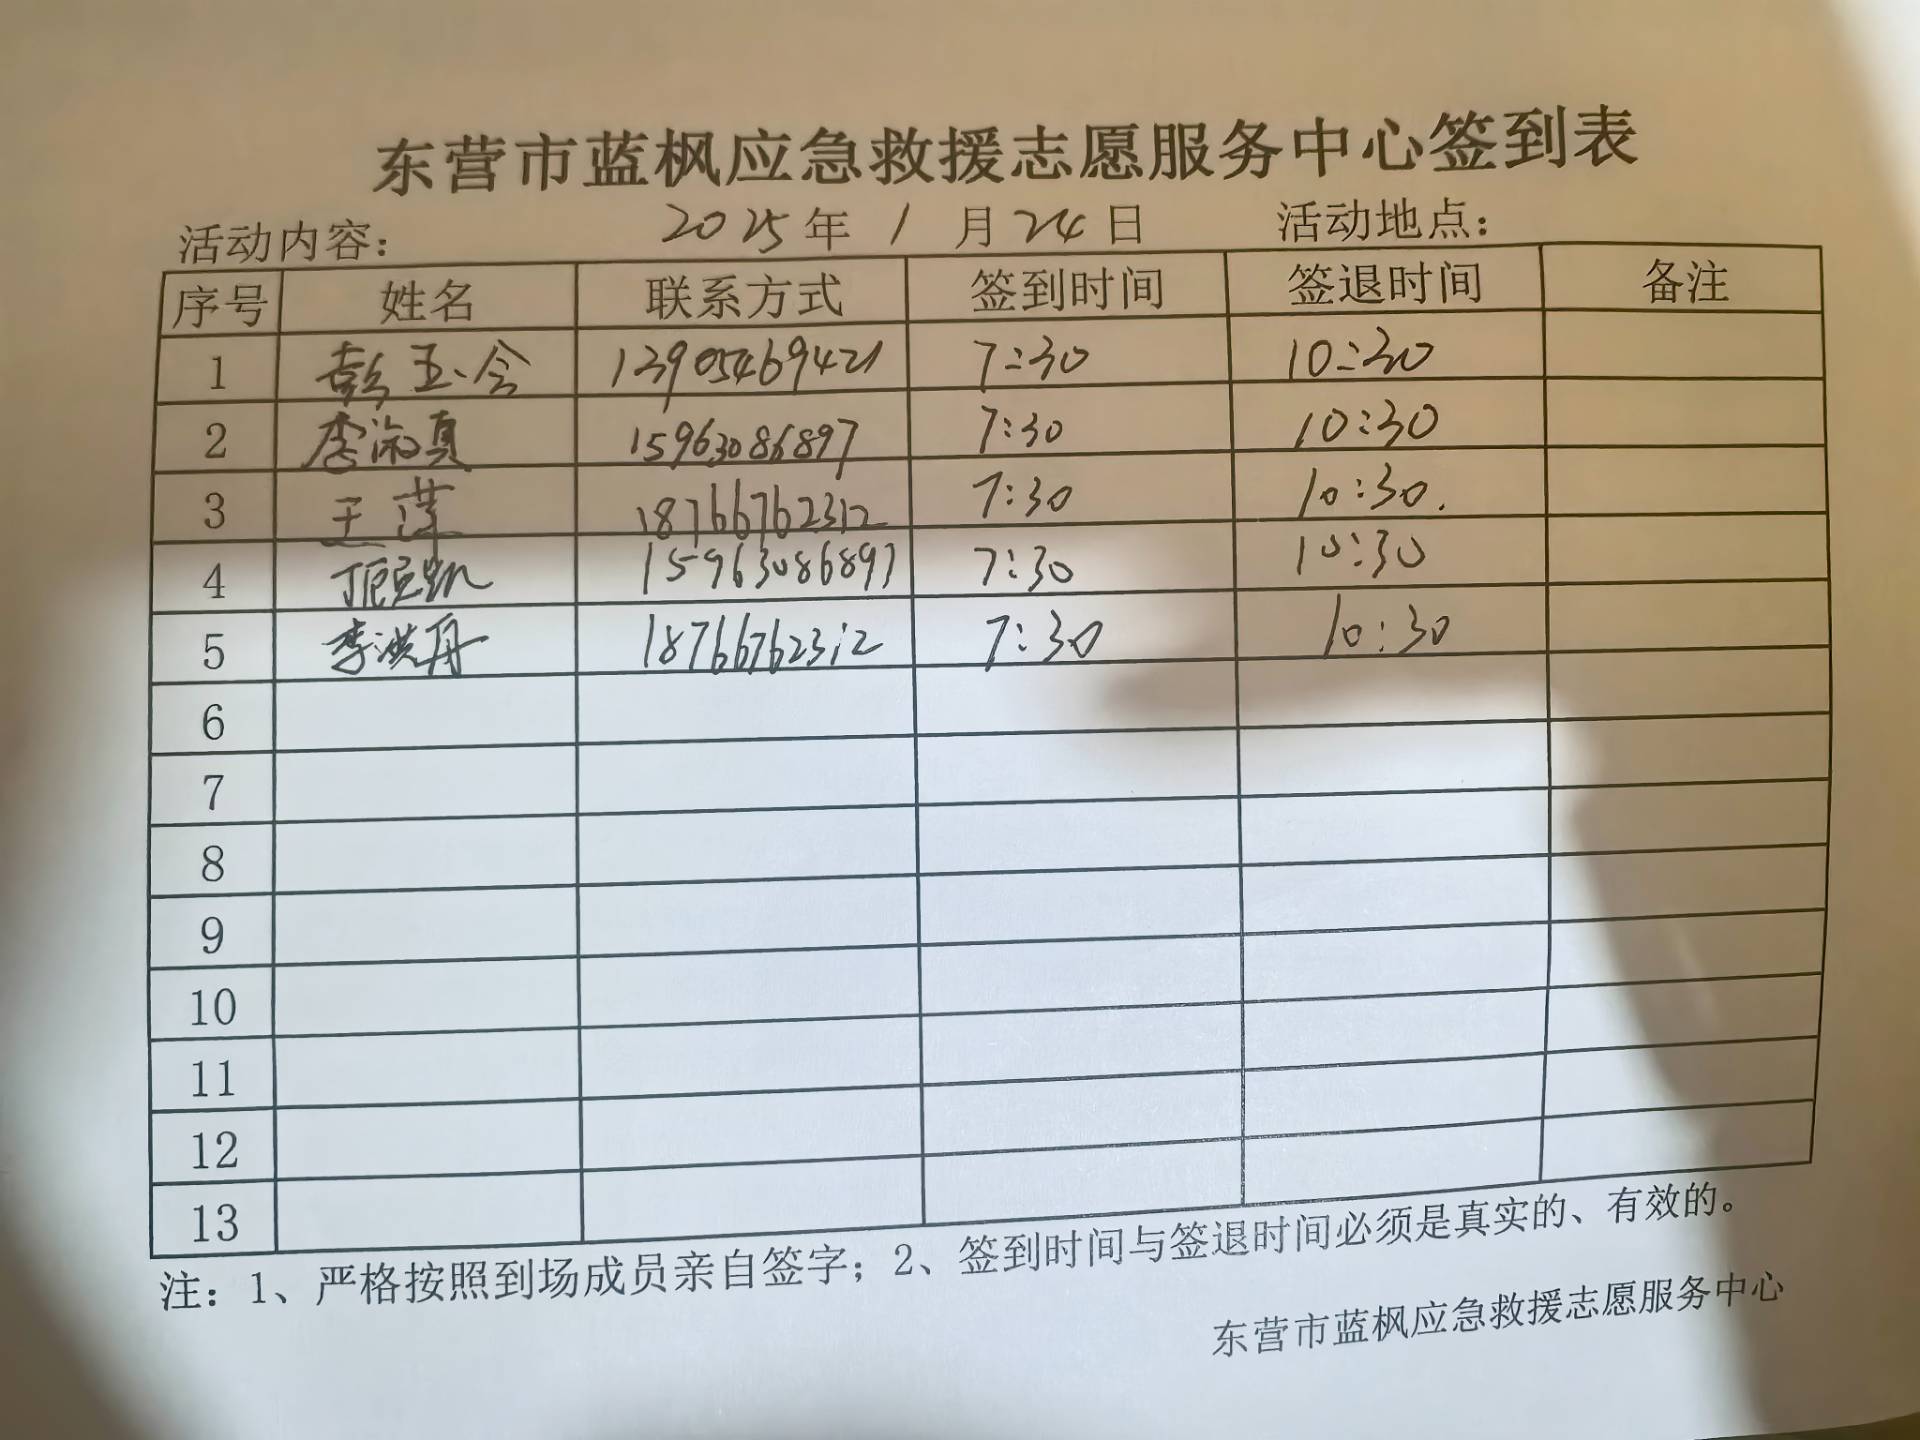 东营市蓝枫应急救援志愿服务中心签到表
活动内容： 2025年1月24日 活动地点：
序号 姓名 联系方式 签到时间 签退时间 备注
1 彭玉会 13905469421 7:30 10:30
2 李淑真 15963086897 7:30 10:30
3 王萍 18766762312 7:30 10:30.
4 15963086897 7:30 10:30
5 李洪丹 18766762312 7:30 10:30
6
7
8
9
10
11
12
13
注：1、严格按照到场成员亲自签字；2、签到时间与签退时间必须是真实的、有效的。
东营市蓝枫应急救援志愿服务中心